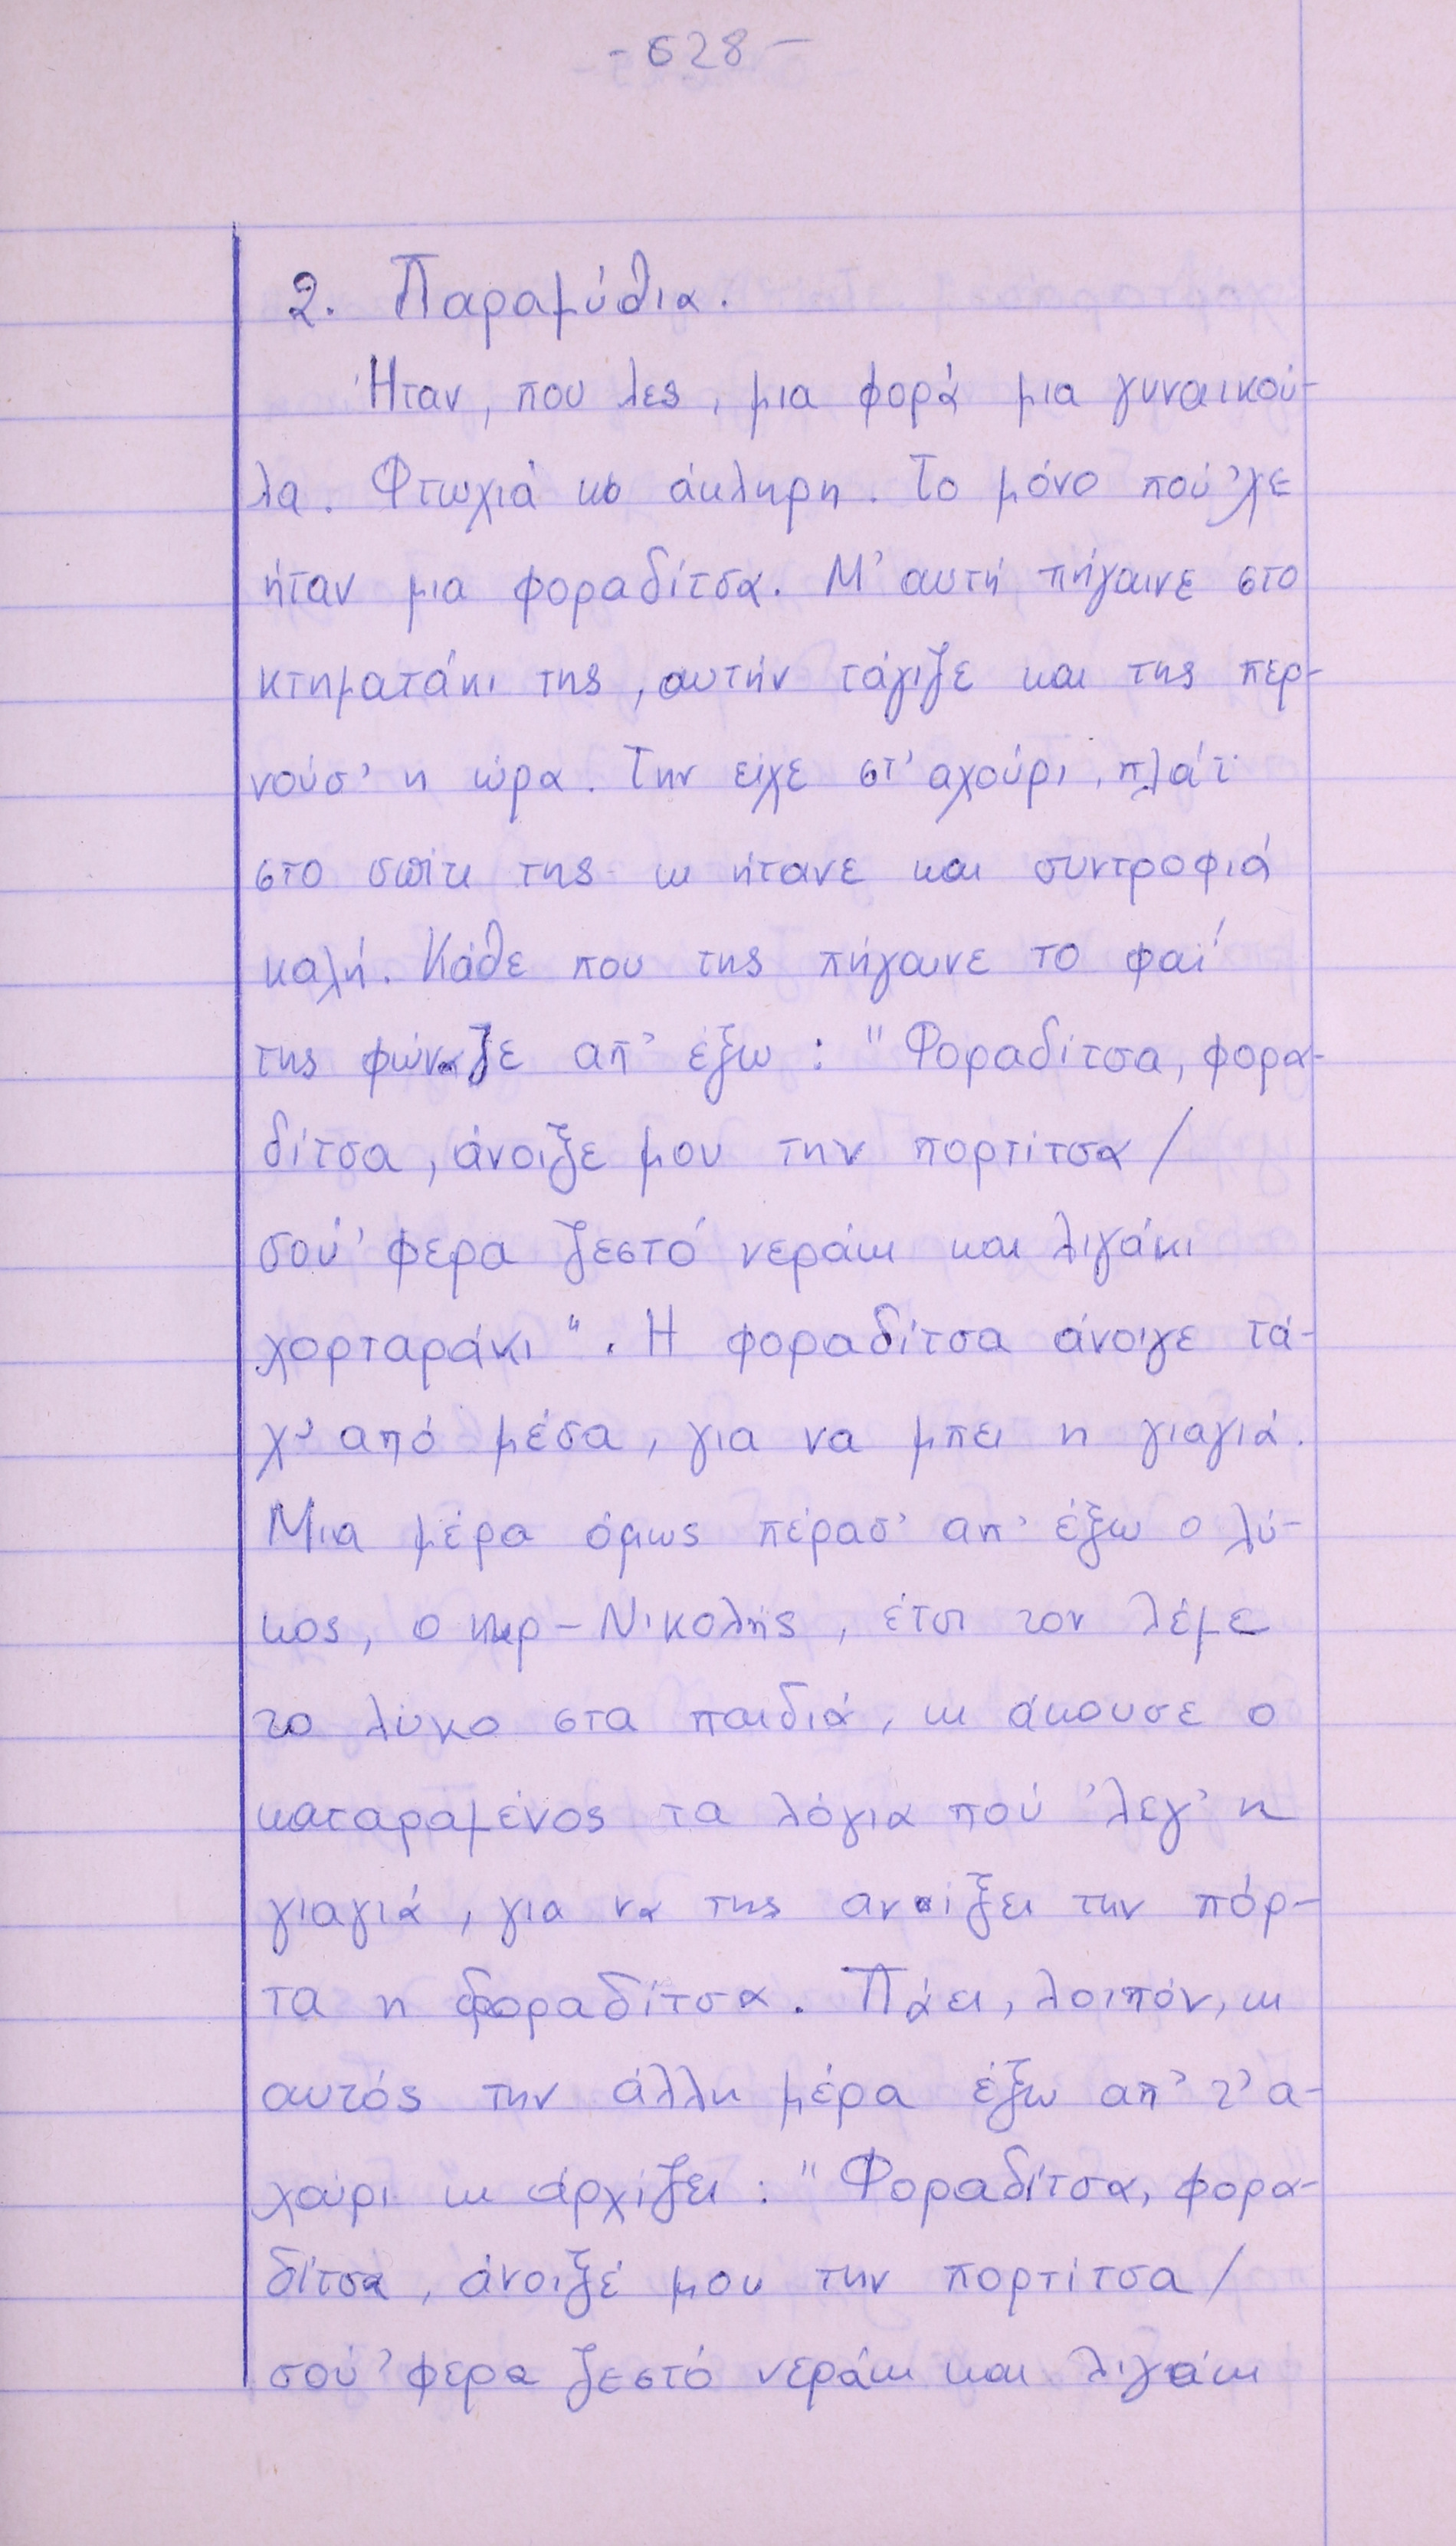 -628-
2. Παραμύθια.
Ήταν, που λες, μια φορά μια γυναικού-
λα. Φτωχιά κι άκληρη. Το μόνο πού'χε
ήταν μια φοραδίτσα. Μ' αυτή πήγαινε στο
κτηματάκι της, αυτήν τάγιζε και της περ-
νούσ' η ώρα. Την είχε στ' αχούρι, πλάι
στο σπίτι της κι ήτανε και συντροφιά
καλή. Κάθε που της πήγαινε το φαΐ
της φώναζε απ' έξω: "Φοραδίτσα, φορα-
δίτσα, άνοιξε μου την πορτίτσα/
σού'φερα ζεστό νεράκι και λιγάκι
χορταράκι". Η φοραδίτσα άνοιγε τά-
χ' από μέσα, για να μπει η γιαγιά.
Μια μέρα όμως πέρασ' απ' έξω ο λύ-
κος, ο κυρ-Νικολής, έτσι τον λέμε
το λύκο στα παιδιά, κι άκουσε ο
καταραμένος τα λόγια πού 'λεγ' η
γιαγιά, για να της ανοίξει την πόρ-
τα η φοραδίτσα. Πάει, λοιπόν, κι
αυτός την άλλη μέρα έξω απ' τ' α-
χούρι κι αρχίζει: "Φοραδίτσα, φορα-
δίτσα, άνοιξέ μου την πορτίτσα/
σού'φερα ζεστό νεράκι και λιγάκι